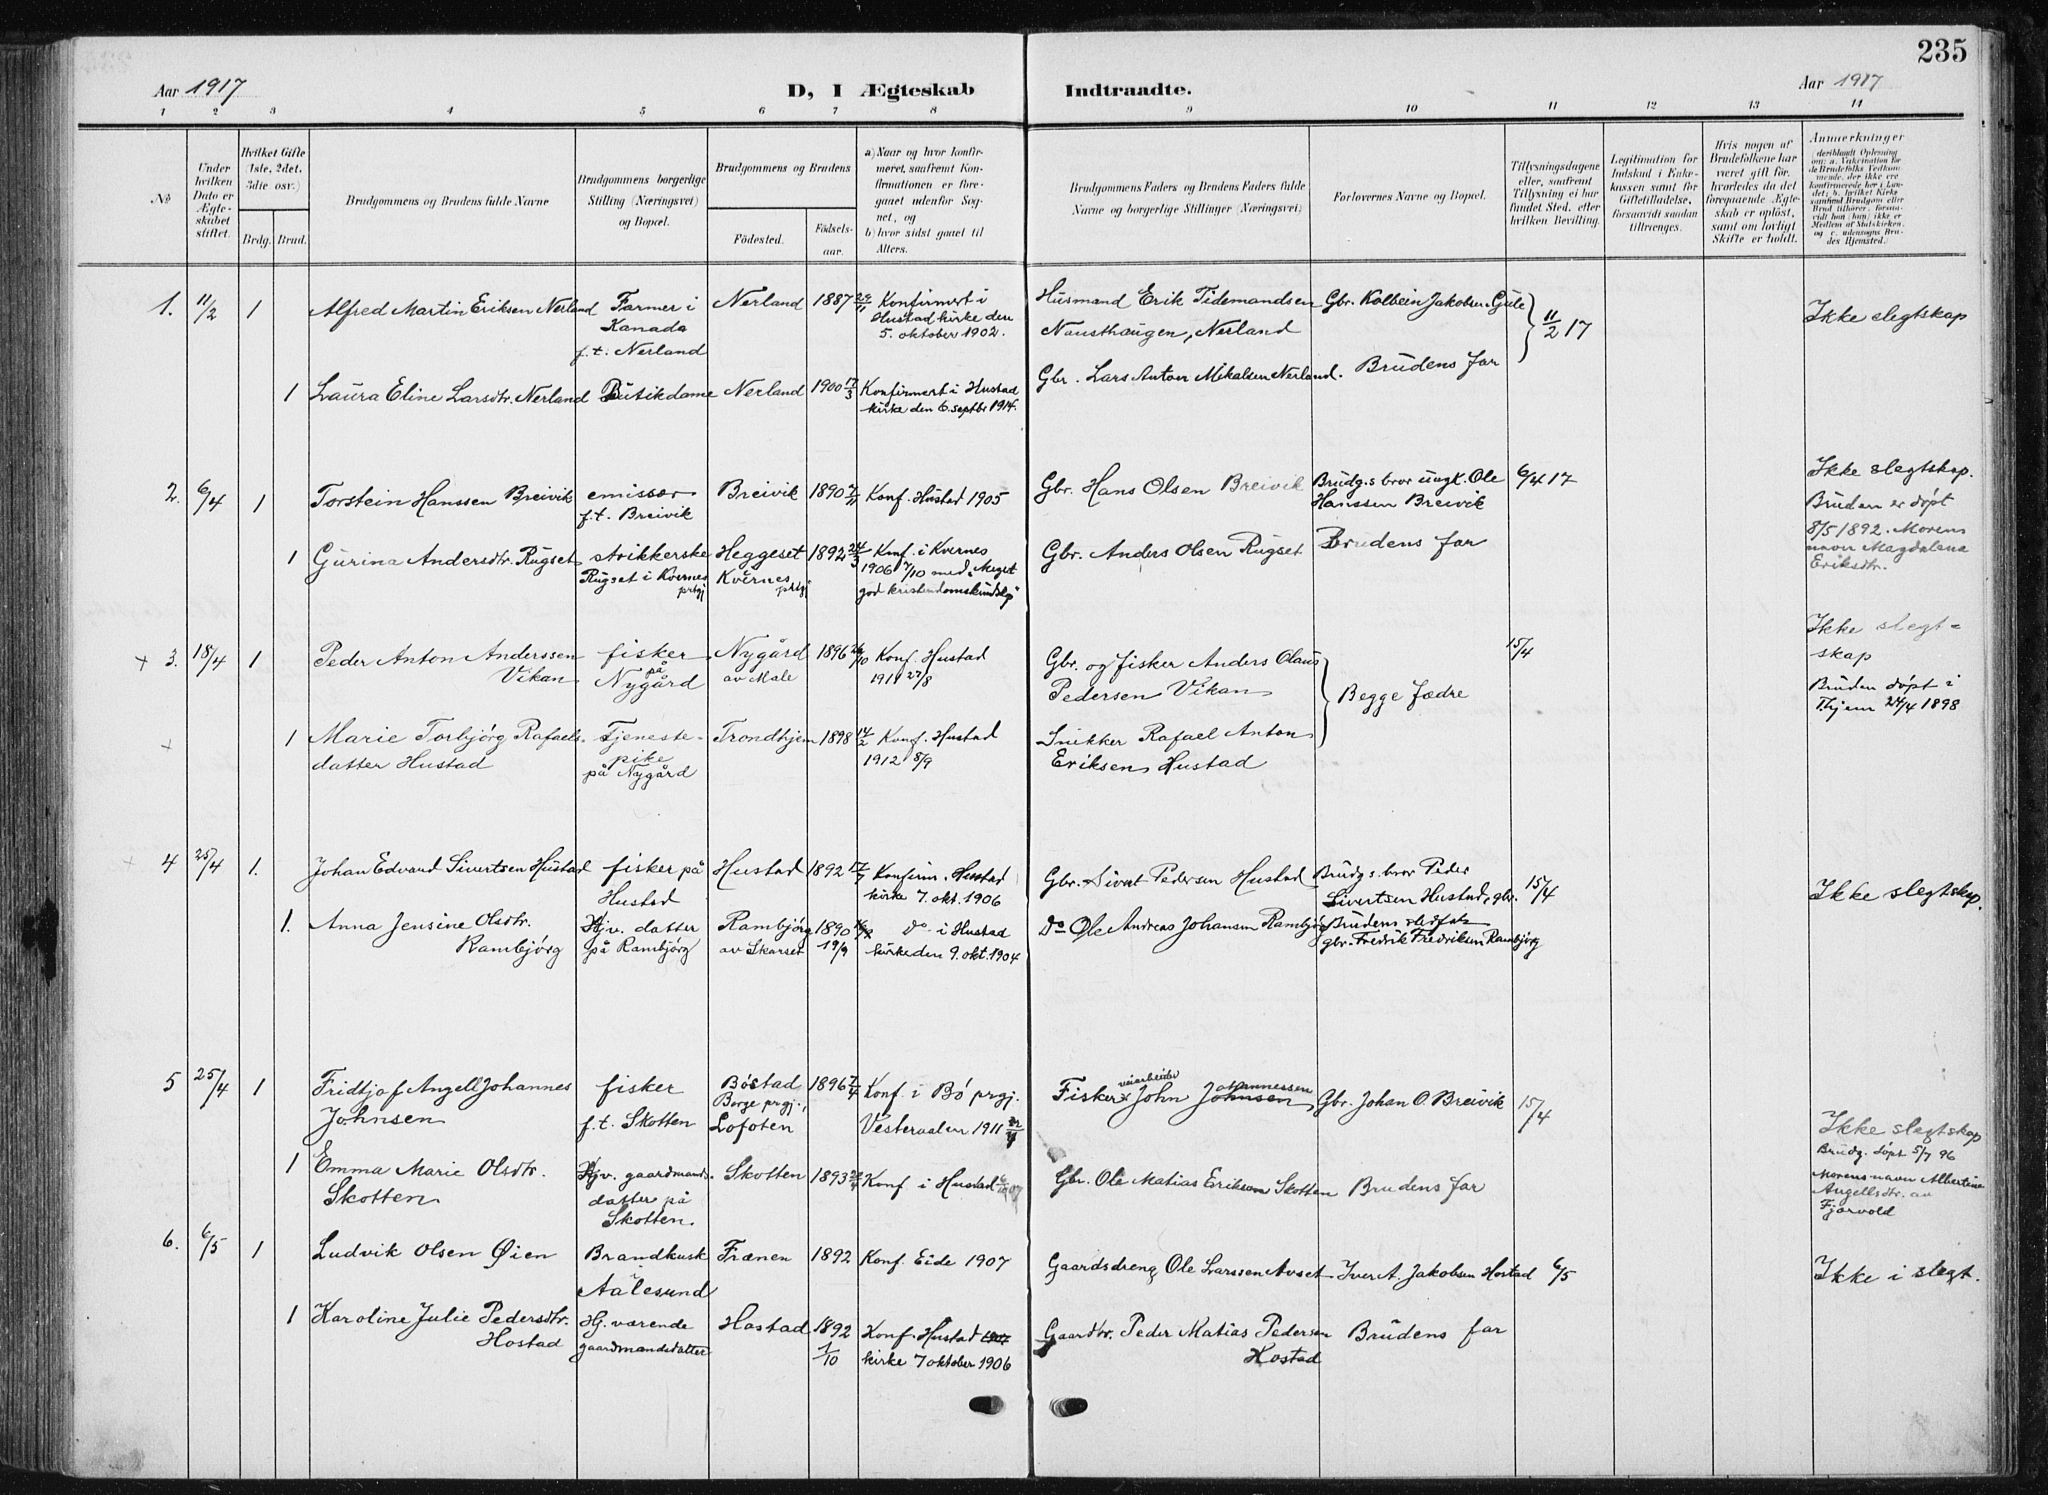 235
Aar 1917
D, I Ægteskab
Indtraadte.
Aar 1917
1 2 3 4 5 6 7 8 9 10 11 12 13 14
No
Under hvilken Dato er Ægteskabet stiftet.
Hvilket Gifte (1ste, 2det, 3die osv.)
Brdg. Brud.
Brudgommens og Brudens fulde Navne
Brudgommens borgerlige Stilling (Næringsvei) og Bopæl.
Brudgommens og Brudens
Födested.
Födsels-aar.
a) Naar og hvor konfirmeret, saafremt Konfirmationen er foregaaet udenfor Sognet, og
b) hvor sidst gaaet til Alters.
Brudgommens Faders og Brudens Faders fulde Navne og borgerlige Stillinger (Næringsvei)
Forlovernes Navne og Bopæl.
Tillysningsdagene eller, saafremt Tillysning ei har fundet Sted, efter hvilken Bevilling.
Legitimation for Indskud i Enkekassen samt for Giftetilladelse, forsaavidt saadan tiltrænges.
Hvis nogen af Brudefolkene har været gift før, hvorledes da det foregaaende Ægteskab er oplöst, samt om lovligt Skifte er holdt.
Anmerkninger
(deriblandt Oplysning om: a. Vakcination for de Brudefolks Vedkommende, der ikke ere konfirmerede her i Landet; b. hvilket Kirkesamfund Brudgom eller Brud tilhører, forsaavidt han (hun) ikke er Medlem af Statskirken, og c. udensogns Brudes Hjemsted.)
1. 11/2 1 Alfred Martin Eriksen Nerland
Farmer i Kanada f.t. Nerland
Nerland 1887 29/11
Konfirmert i Hustad kirke den 5. oktober 1902.
Husmand Erik Tidemandsen Nausthaugen, Nerland
Gbr. Kolbein Jakobsen Gule
11/2 17
Ikke slegtskap
1 Laura Eline Larsdtr. Nerland
Butikdame
Nerland 1900 17/3
Konfirmert i Hustad kirke den 6. septbr 1914.
Gbr. Lars Anton Mikalsen Nerland.
Brudens far
2. 6/4 1 Torstein Hanssen Breivik
emissær f.t. Breivik
Breivik 1890 7/11
Konf. Hustad 1905
Gbr. Hans Olsen Breivik
Brudg.s bror ungk. Ole Hanssen Breivik
6/4 17
Ikke slegtskap.
Bruden er døpt 8/5 1892. Morens navn Magdalena Eriksdtr.
1 Gurina Andersdtr. Rugset
strikkerske Rugset i Kvernes prtgj
Heggeset Kvernes prtgj
1892 24/3
Konf. i Kvernes 1906 7/10 med "Meget god kristendomskundskp"
Gbr. Anders Olsen Rugset
Brudens far
+ 3. 18/4 1 Peder Anton Anderssen Vikan
fisker på Nygård
Nygård av Male
1896 26/10
Konf. Hustad 1911 27/8
Gbr. og fisker Anders Olaus Pedersen Vikan
Begge fædre
15/4
Ikke slegt=
skap
Bruden døpt i Thjem 24/4 1898
+ 1 Marie Torbjörg Rafaels-
datter Hustad
Tjeneste-
pike på Nygård
Trondhjem 1898 14/2
Konf. Hustad 1912 8/9
Snikker Rafael Anton Eriksen Hustad
+ 4 25/4 1. Johan Edvard Sivertsen Hustad
fisker på Hustad
Hustad 1892 17/7
Konfirm. Hustad kirke 7. okt. 1906
Gbr. Sivert Pedersen Hustad
Brudg.s bror Peder Sivertsen Hustad, gbr.
15/4
Ikke slegtskap.
1. Anna Jensine Olsdtr. Rambjörg
Hjv. datter på Rambjörg
Rambjörg av Skarset
1890 19/9
do i Hustad kirke den 9. okt. 1904
Do Ole Andreas Johansen Rambjörg
Brudens stedfar gbr. Fredrik Fredriksen Rambjörg
5 25/4 1 Fridtjof Angell Johannes Johnsen
fisker f.t. Skotten
Böstad Borge prgj., Lofoten
1896 7/4
Konf. i Bö prgj. Vesteraalen 1911
Fisker & veiarbeider John Johnsen Johannessen
Gbr. Johan O. Breivik
15/4
Ikke slegtskap
Brudg. døpt 5/7 96
Morens navn Albertine Angellsdtr. av Fjærvold
1 Emma Marie Olsdtr. Skotten
Hjv. gaardmands-
datter på Skotten.
Skotten 1893
Konf i Hustad 6/10 07
Gbr. Ole Matias Eriksen Skotten
Brudens far
6. 6/5 1 Ludvik Olsen Øien
Brandkusk Aalesund
Frænen 1892
Konf. Eide 1907
Gaardsdreng Ole Larssen Avset
Iver A. Jakobsen Hostad
6/5
Ikke i slegt.
1 Karoline Julie Pedersdtr. Hostad
Hj. værende gaardmandsdatter
Hostad 1892 1/10
Konf. Hustad kirke 7 oktober 1906
Gaardbr. Peder Matias Pedersen Hostad
Brudens far